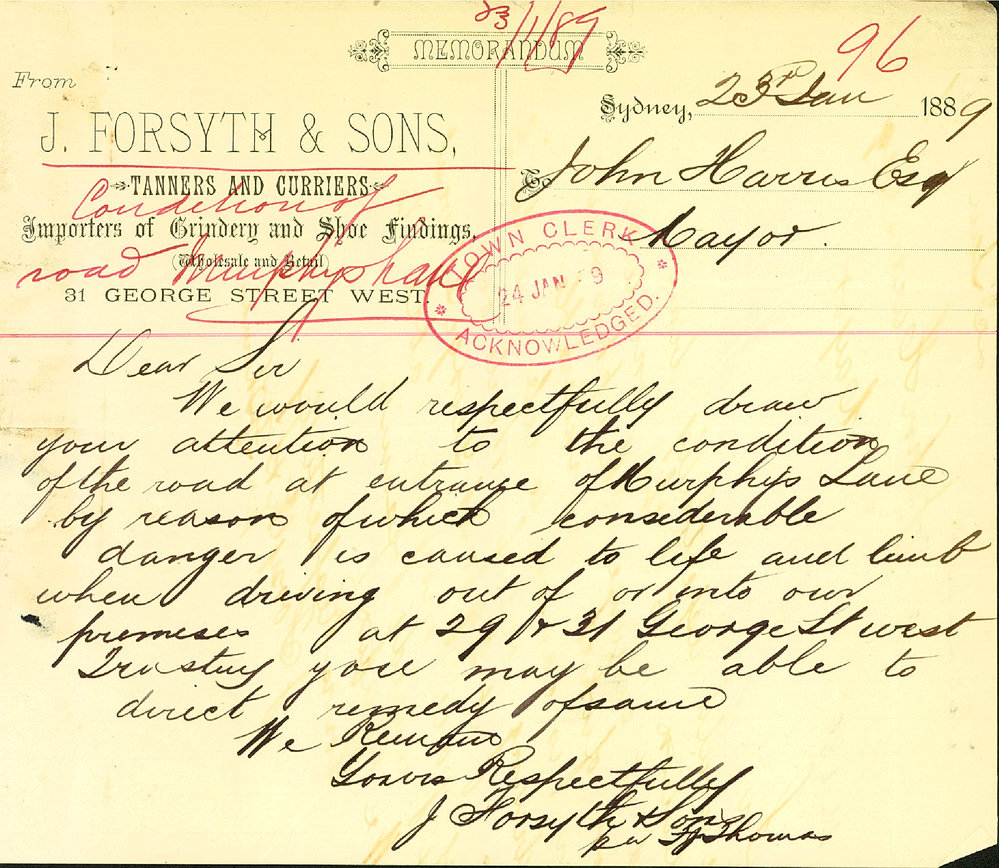 23/1/89
96
MEMORANDUM
From
J. FORSYTH & SONS,
TANNERS AND CURRIERS
Importers of Grindery and Shoe Findings,
(Wholesale and Retail)
31 GEORGE STREET WEST.
Condition of
road Murphys Lane
Sydney, 23rd Jan 1889
To John Harris Esq
Mayor.
TOWN CLERK
24 JAN 89
ACKNOWLEDGED.
Dear Sir
We would respectfully draw
your attention to the condition
of the road at entrance of Murphys Lane
by reason of which considerable
danger is caused to life and limb
when driving out of or into our
premises at 29 & 31 George St west
Trusting you may be able to
direct remedy of same
We Remain
Yours Respectfully
J Forsyth & Sons
per Thomas